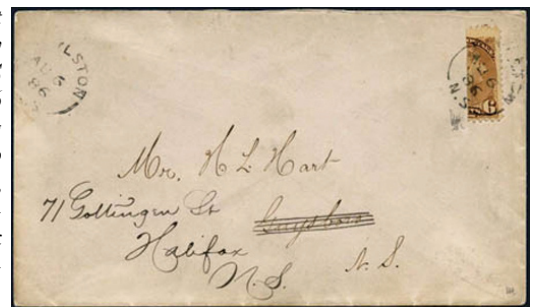 LSTON
AU 6
86
AU 6
86
N.S.
6
Mr. H L Hart
71 Gottingen St
Guysboro
Halifax
N.S.
N.S.